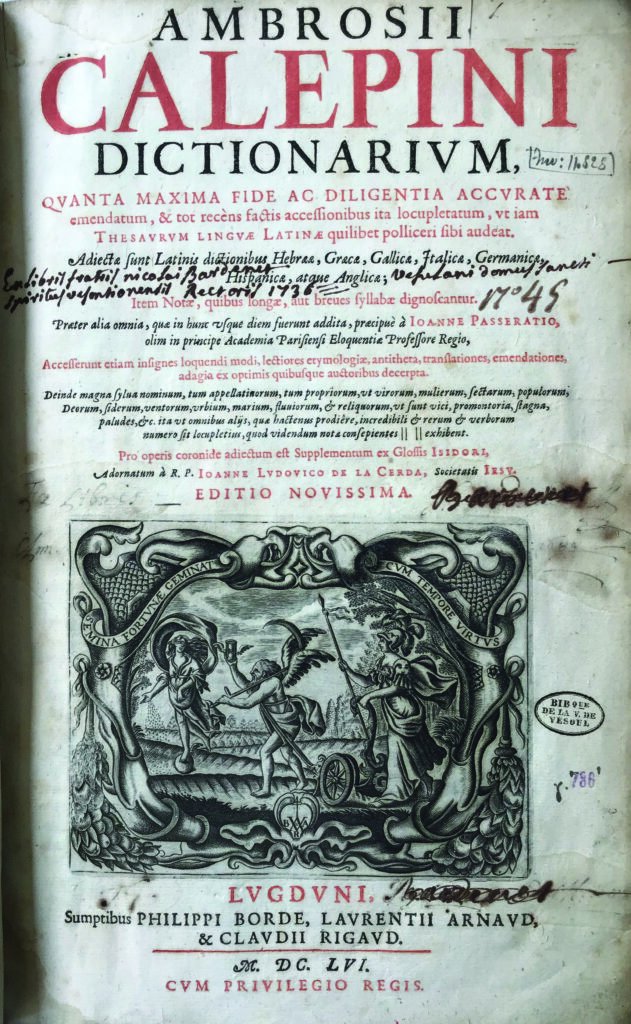 AMBROSII
CALEPINI
DICTIONARIVM,
QVANTA MAXIMA FIDE AC DILIGENTIA ACCVRATE
emendatum, & tot recèns factis accessionibus ita locupletatum, vt iam
THESAVRVM LINGVÆ LATINÆ quilibet polliceri sibi audeat.
Adiectæ sunt Latinis dictionibus Hebrææ, Græcæ, Gallicæ, Italicæ, Germanicæ,
Hispanicæ, atque Anglicæ;
Ex libris fratris nicolai
spiritus vesontionensis Rectoris 1736
domus sancti
Item Notæ, quibus longæ, aut breues syllabæ dignoscantur.
Præter alia omnia, quæ in hunc vsque diem fuerunt addita, præcipuè à IOANNE PASSERATIO,
olim in principe Academia Parisiensi Eloquentiæ Professore Regio,
Accesserunt etiam insignes loquendi modi, lectiores etymologiæ, antitheta, translationes, emendationes,
adagia ex optimis quibusque auctoribus decerpta.
Deinde magna sylua nominum, tum appellatinorum, tum propriorum, vt virorum, mulierum, sectarum, populorum,
Deorum, siderum, ventorum, vrbium, marium, fluuiorum, & reliquorum, vt sunt vici, promontoria, stagna,
paludes, &c. ita vt omnibus alijs, quæ hactenus prodiêre, incredibili & rerum & verborum
numero sit locupletius, quod videndum nota consepientes || || exhibent.
Pro operis coronide adiectum est Supplementum ex Glossis ISIDORI,
Adornatum à R. P. IOANNE LVDOVICO DE LA CERDA, Societatis IESV.
EDITIO NOVISSIMA.
SEMINA FORTVNÆ GEMINAT
CVM TEMPORE VIRTVS
BIBQUE
DE LA V. DE
VESOUL
786
LVGDVNI,
Sumptibus PHILIPPI BORDE, LAVRENTII ARNAVD,
& CLAVDII RIGAVD.
M. DC. LVI.
CVM PRIVILEGIO REGIS.